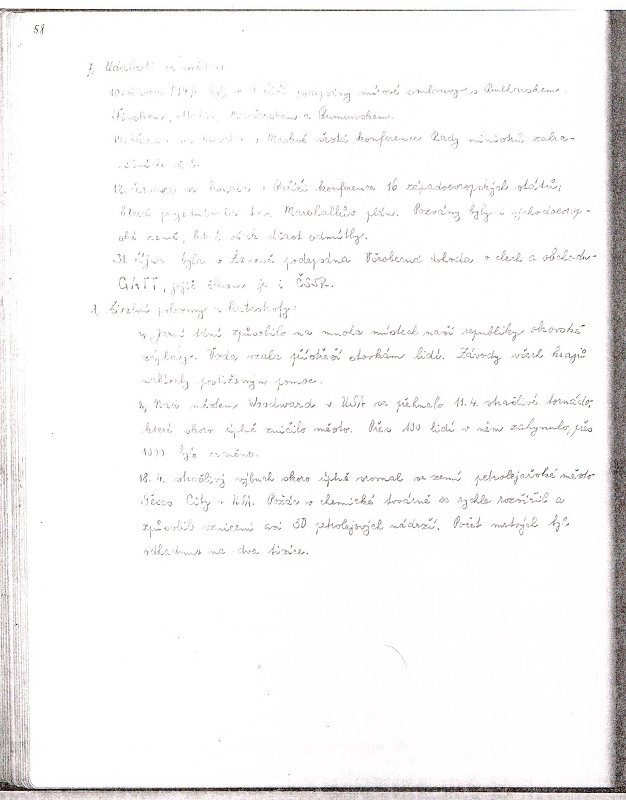 58
7. Události ve světě:
10. února 1947 byly v Paříži podepsány mírové smlouvy s Bulharskem,
Finskem, Itálií, Maďarskem a Rumunskem.
v Moskvě šestá konference Rady ministrů zahra-
ničních věcí.
12. července se konala v Paříži konference 16 západoevropských států,
která tzv. Marshallův plán. Pozvány byly i východoevrop-
ské země, které však účast odmítly.
30. října byla v Ženevě podepsána Všeobecná dohoda o clech a obchodu-
GATT, jejíž členem je i ČSSR.
8. Živelní pohromy a katastrofy:
a, Jarní tání způsobilo na mnoha místech naší republiky obrovské
záplavy. Voda vzala přístřeší stovkám lidí. Závody všech krajů
nabízely postiženým pomoc.
b, Nad městem Woodward v USA se přehnalo 11.4. strašlivé tornádo,
které skoro úplně zničilo město. Přes 100 lidí v něm zahynulo, přes
1000 bylo raněno.
18. 4. strašlivý výbuch skoro úplně srovnal se zemí petrolejářské město
Texas City v USA. Požár v chemické továrně se rychle rozšířil a
způsobil vznícení asi 50 petrolejových nádrží. Počet mrtvých byl
odhadnut na dva tisíce.